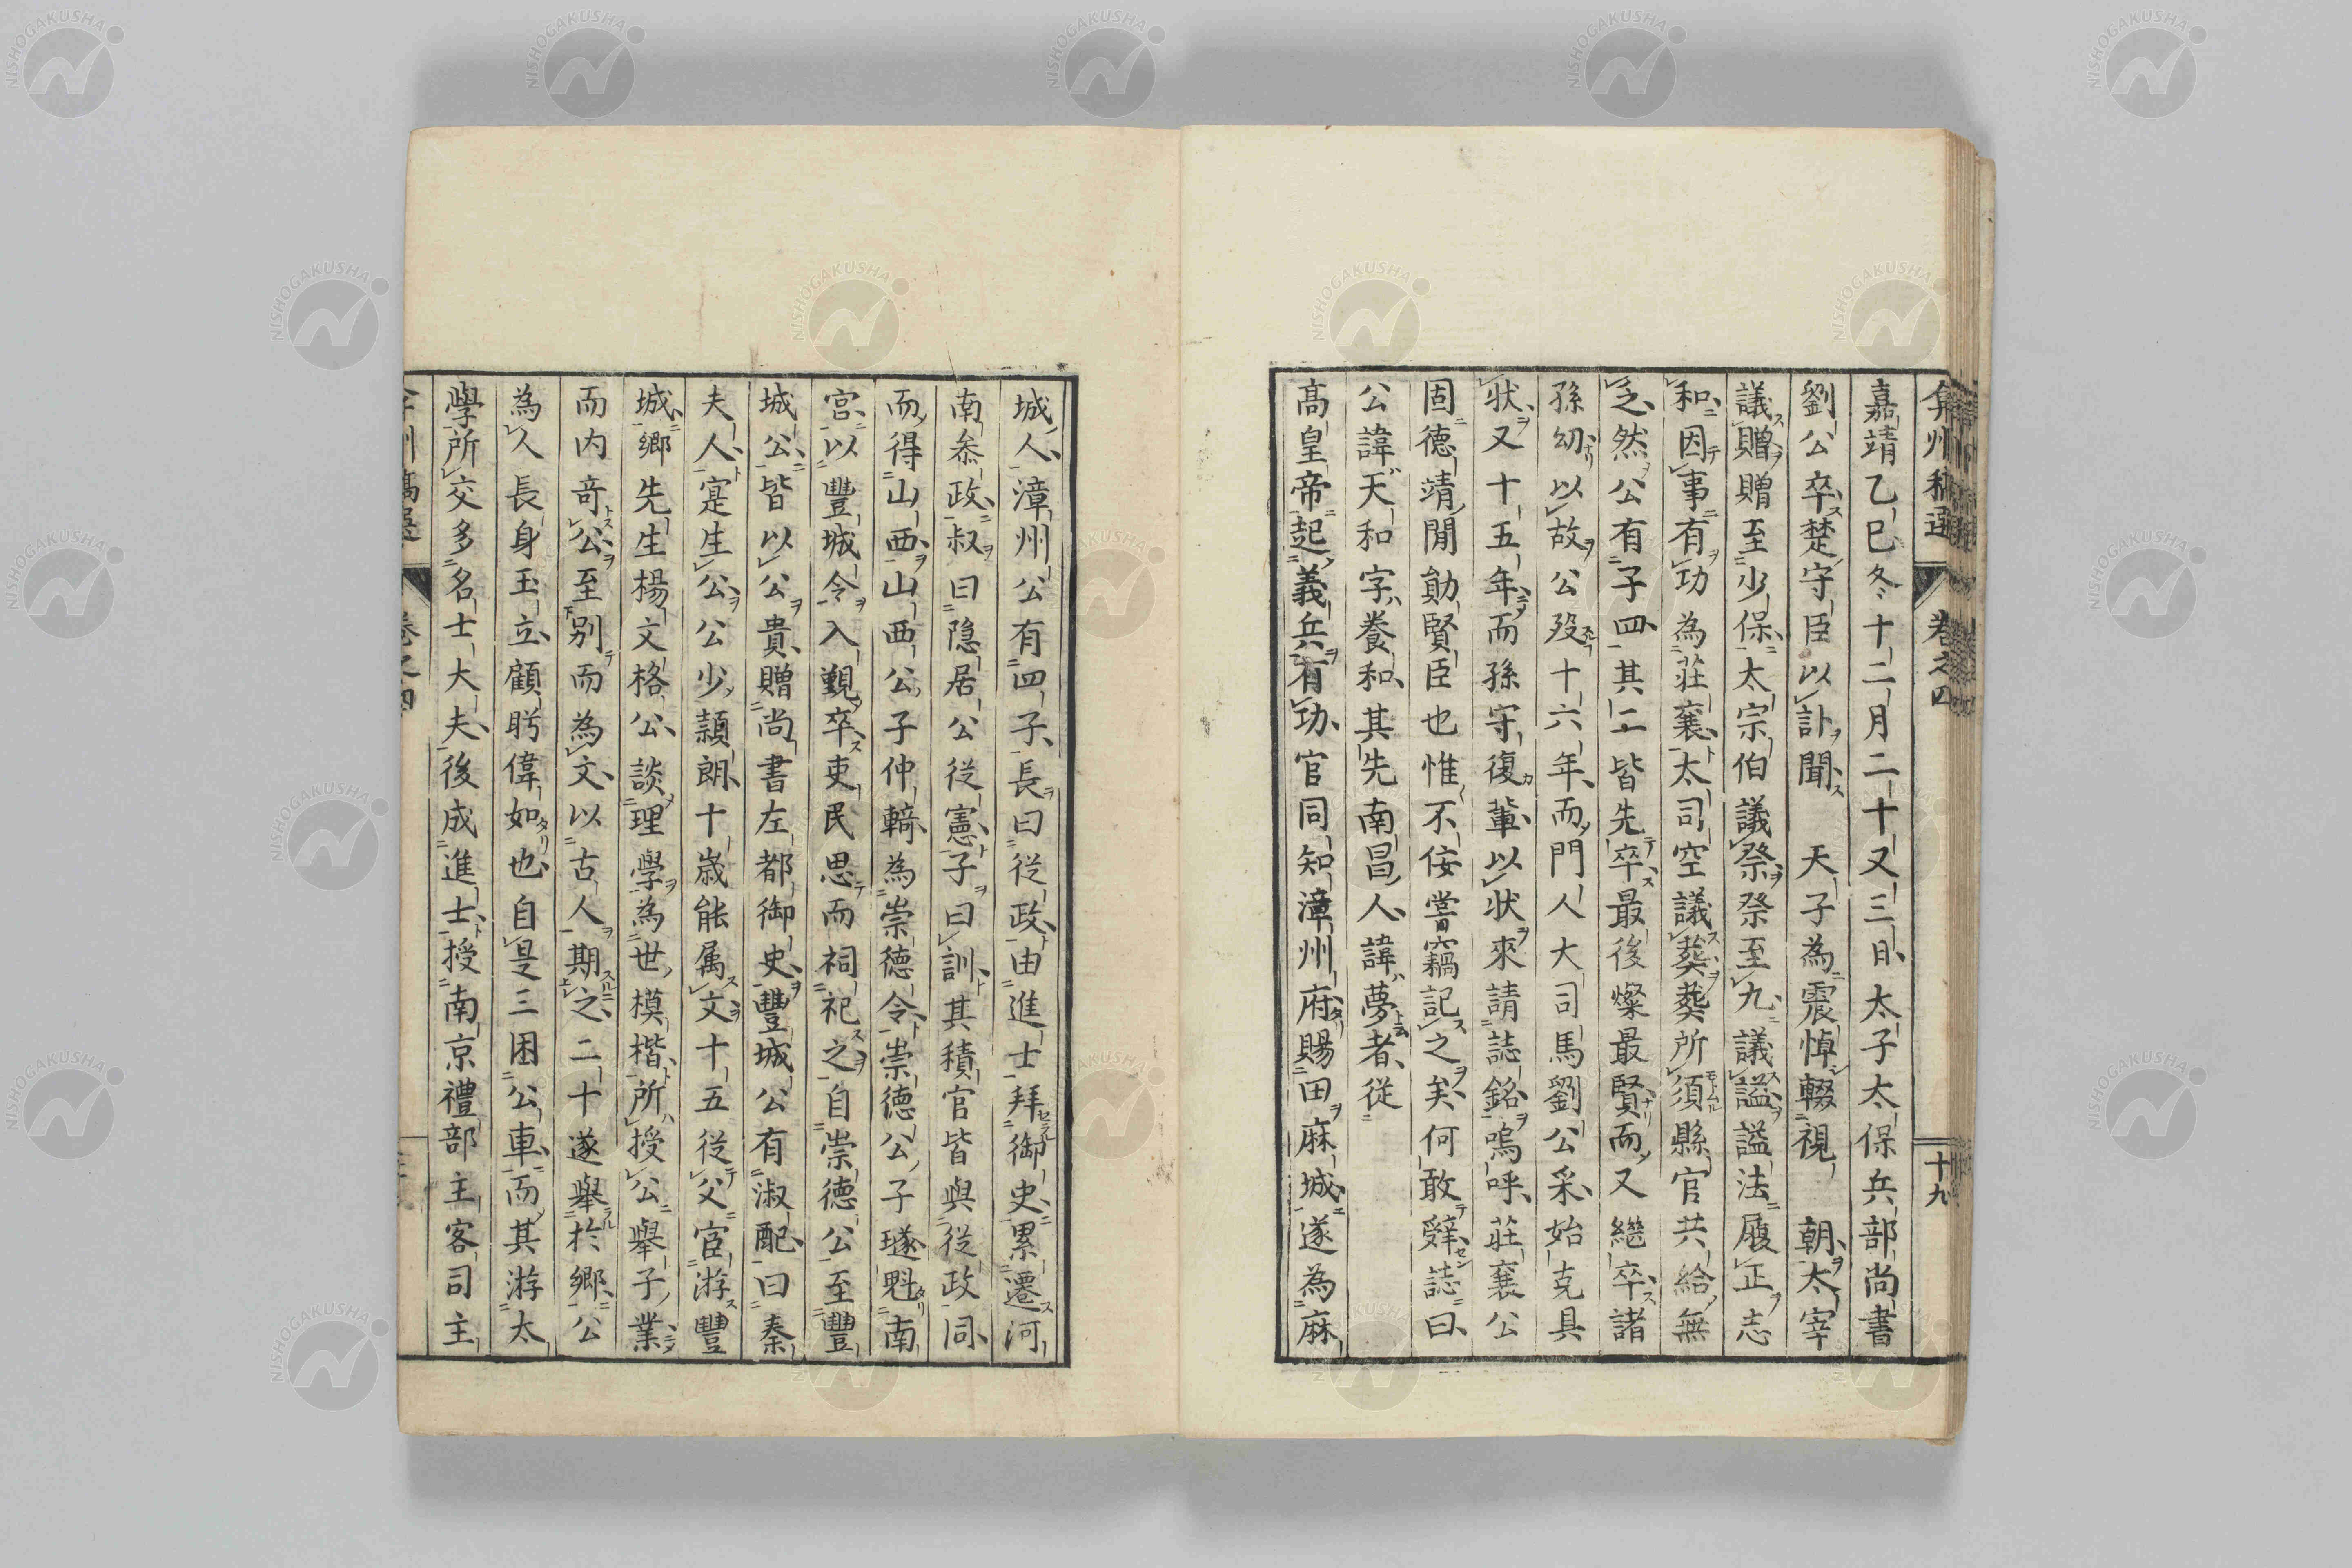 弇州稿選
卷之四
十九
嘉靖乙巳冬十二月二十又三日太子太保兵部尚書
劉公卒楚守臣以訃聞　天子為震悼輟視　朝太宰
議贈贈至少保太宗伯議祭祭至九議謚謚法履正志
和因事有功為莊襄太司空議葬葬所須縣官共給無
乏然公有子四其二皆先卒最後燦最賢而又繼卒諸
孫幼以故公歿十六年而門人大司馬劉公采始克具
狀又十五年而孫守復輩以狀來請誌銘嗚呼莊襄公
固德靖閒勛賢臣也惟不佞嘗竊記之矣何敢辤誌曰
公諱天和字養和其先南昌人諱夢者從
高皇帝起義兵有功官同知漳州府賜田麻城遂為麻
城人漳州公有四子長曰從政由進士拜御史累遷河
南叅政叔曰隐居公從憲子曰訓其積官皆與從政同
而得山西山西公子仲輢為崇德令崇德公子璲魁南
宮以豐城令入覲卒吏民思而祠祀之自崇德公至豐
城公皆以公貴贈尚書左都御史豐城公有淑配曰秦
夫人寔生公公少頴朗十歳能属文十五從父宦游豐
城鄉先生楊文格公談理學為世模楷所授公舉子業
而内竒公至別而為文以古人期之二十遂舉於鄉公
為人長身玉立顧盻偉如也自是三困公車而其游太
學所交多名士大夫後成進士授南京禮部主客司主
卷之四